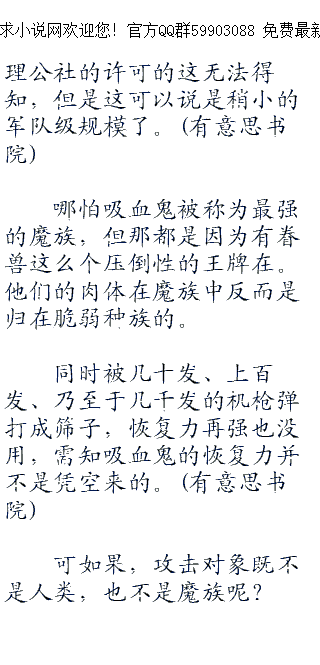 求小说网欢迎您！官方QQ群59903088 免费最新
理公社的许可的这无法得
知，但是这可以说是稍小的
军队级规模了。(有意思书
院)
哪怕吸血鬼被称为最强
的魔族，但那都是因为有眷
兽这么个压倒性的王牌在。
他们的肉体在魔族中反而是
归在脆弱种族的。
同时被几十发、上百
发、乃至于几千发的机枪弹
打成筛子，恢复力再强也没
用，需知吸血鬼的恢复力并
不是凭空来的。(有意思书
院)
可如果，攻击对象既不
是人类，也不是魔族呢？